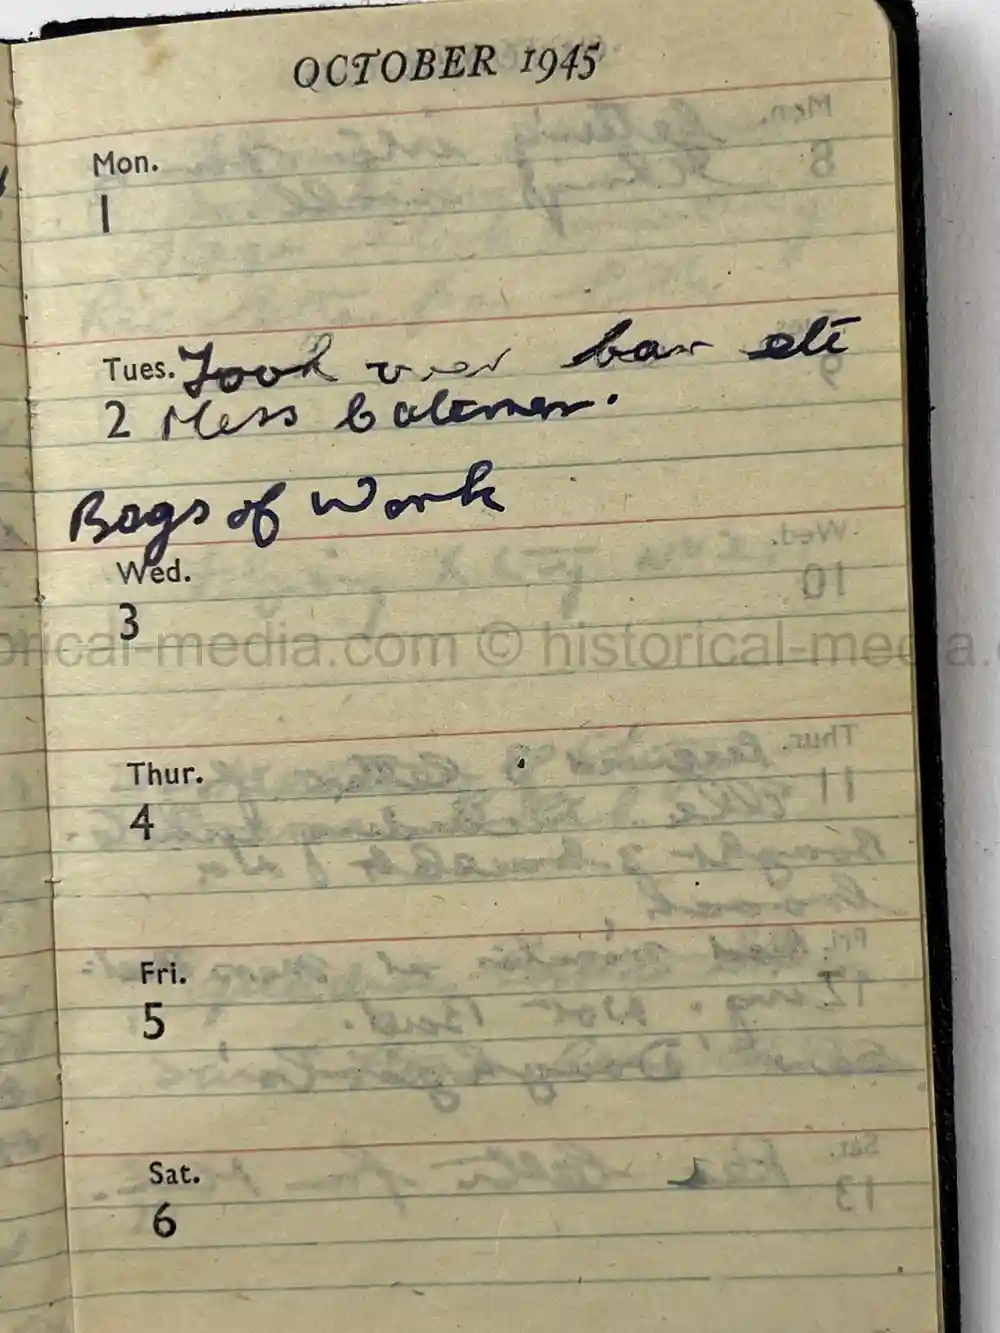 OCTOBER 1945
Mon.
1
Tues. Took over bar etc
2 Mess batmen.
Bags of Work
Wed.
3
historical-media.com © historical-media.
Thur.
4
Fri.
5
Sat.
6